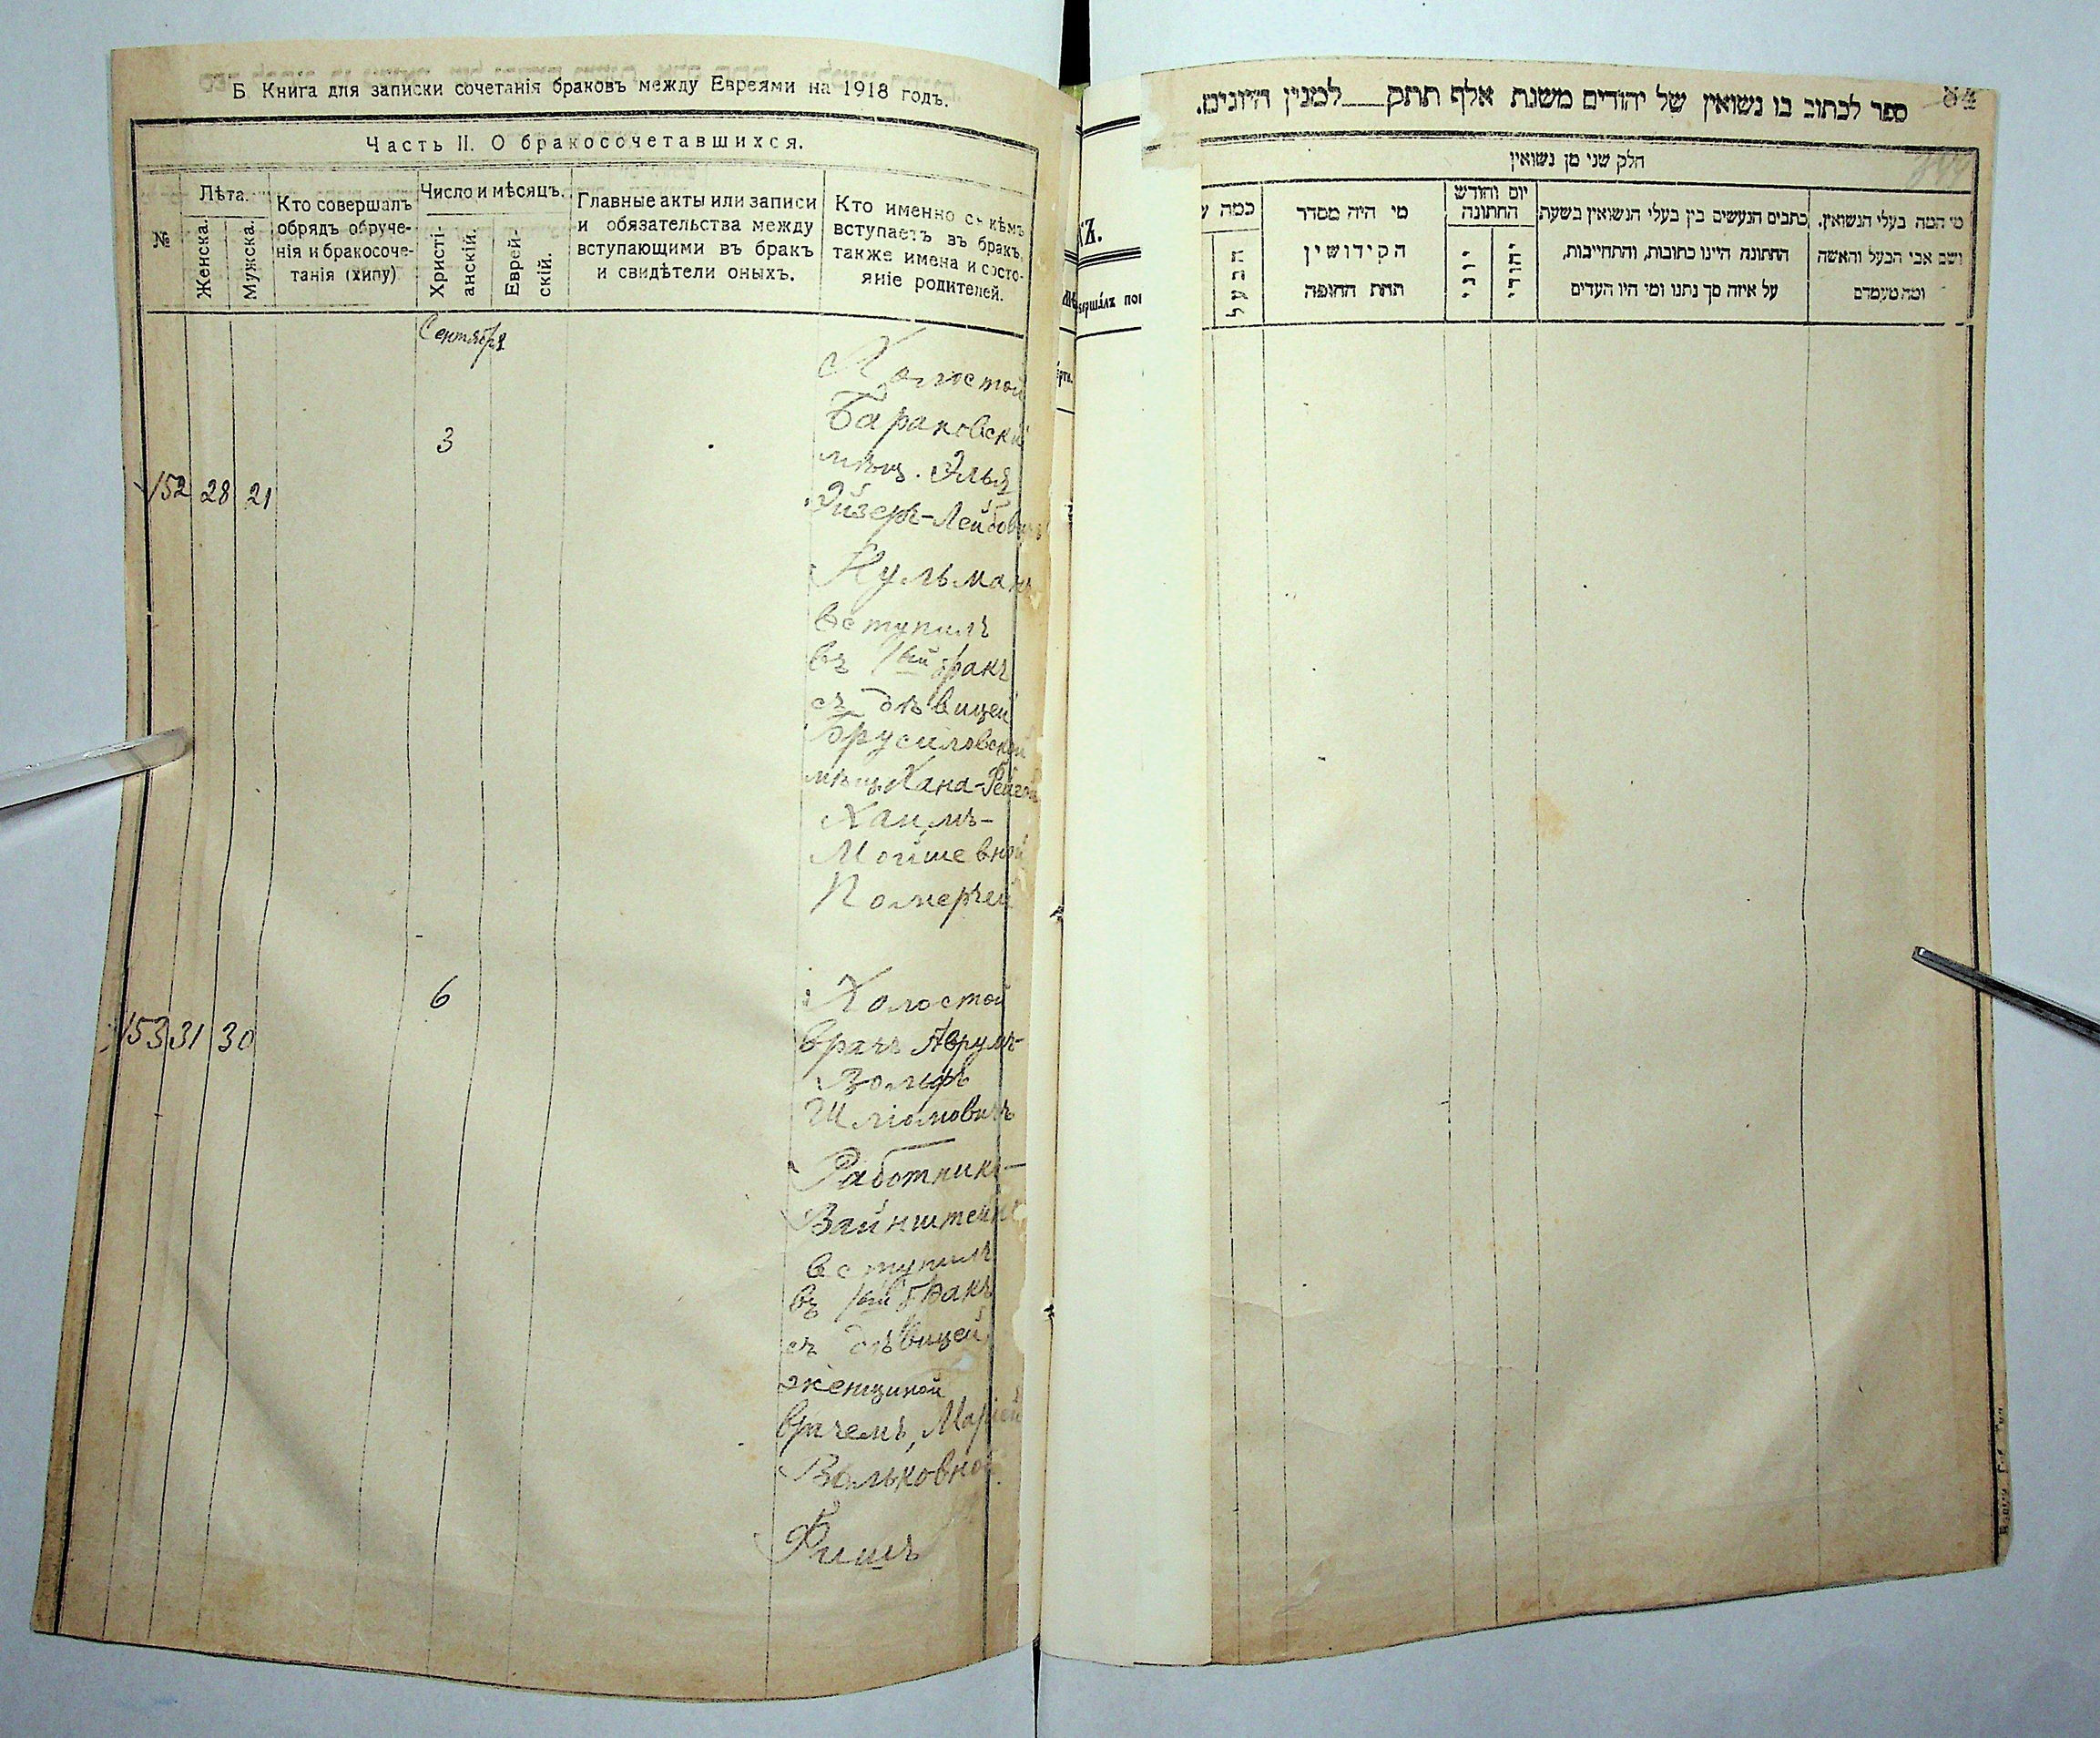 Б. Книга для записки сочетанія браковъ между Евреями на 1918 годъ.
Часть II. О бракосочетавшихся.
№
Лѣта.
Женска.
Мужска.
Кто совершалъ
обрядъ обруче-
нія и бракосоче-
танія (хипу)
Число и мѣсяцъ.
Христі-
анскій.
Еврей-
скій.
Главные акты или записи
и обязательства между
вступающими въ бракъ
и свидѣтели оныхъ.
Кто именно съ кѣмъ
вступаетъ въ бракъ,
также имена и состо-
яніе родителей.
Сентября
3
152 28 21
Холостой
Барановскій
мѣщ. Элья
Эйзеръ-Лейбовичъ
Кульманъ
вступилъ
въ 1ый бракъ
съ дѣвицей
Брусиловской
мѣщ. Хана-Рейзей
Хаимъ-
Мойшевной
Померъ
6
153 31 30
Холостой
врачъ Аврумъ-
Вольфъ
Шліомовичъ
Работникъ-
Вайнштейнъ
вступилъ
въ 1ый бракъ
съ дѣвицей
женщиной
врачемъ, Маріей
Вольковной
Фишъ
ספר לכתוב בו נשואין של יהודים משנת אלף תתק למנין היונים.
84
חלק שני מן נשואין
כמה
הבעל
מי היה מסדר
הקידושין
תחת החופה
יום וחודש
החתונה
יוני
יהודי
כתבים הנעשים בין בעלי הנשואין בשעת
החתונה היינו כתובות, והתחייבות,
על איזה סך נתנו ומי היו העדים
מי המה בעלי הנשואין.
ושם אבי הבעל והאשה
ומה מעמדם